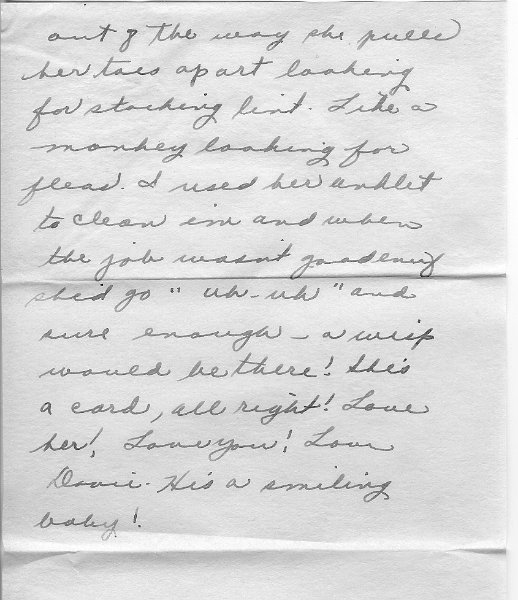 out of the way she pulls
her toes apart looking
for stocking lint. Like a
monkey looking for
fleas. I used her anklet
to clean 'em and when
the job wasn't good enuf
she'd go "uh-uh" and
sure enough - a wisp
would be there! She's
a card, all right! Love
her! Love you! Love
Davie. He's a smiling
baby!